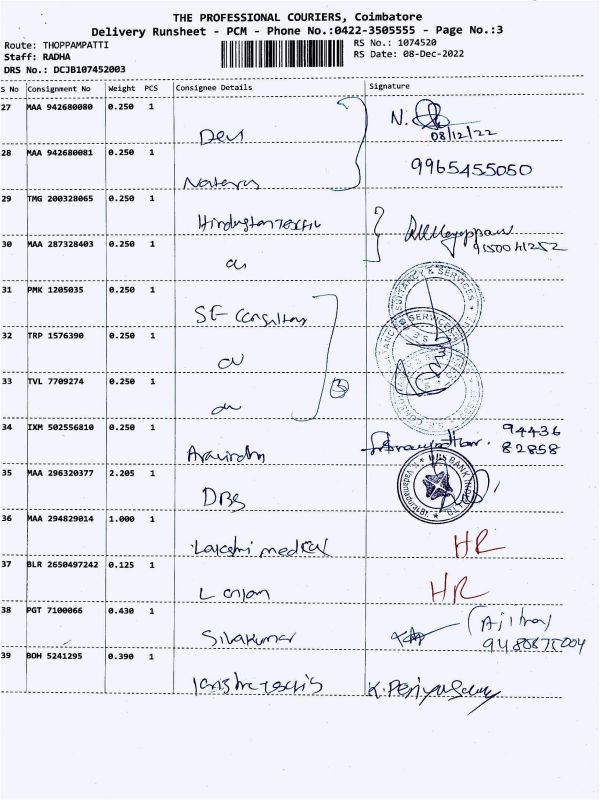 THE PROFESSIONAL COURIERS, Coimbatore
Delivery Runsheet - PCM - Phone No.:0422-3505555 - Page No.:3
Route: THOPPAMPATTI RS No.: 1074520
Staff: RADHA RS Date: 08-Dec-2022
DRS No.: DCJB107452003
S No Consignment No Weight PCS Consignee Details Signature
27 MAA 942680080 0.250 1 Devi N.
08/12/22
28 MAA 942680081 0.250 1 9965455050
29 TMG 200328065 0.250 1
30 MAA 287328403 0.250 1
31 PMK 1205035 0.250 1
32 TRP 1576390 0.250 1
33 TVL 7709274 0.250 1
3
34 IXM 502556810 0.250 1 94436
82858
35 MAA 296320377 2.205 1 DBS
DBS BANK INDIA LTD
36 MAA 294829014 1.000 1 Lakshmi medical HR
37 BLR 2650497242 0.125 1 HR
38 PGT 7100066 0.430 1 Sivakumar
39 BOH 5241295 0.390 1 K. Periyasamy